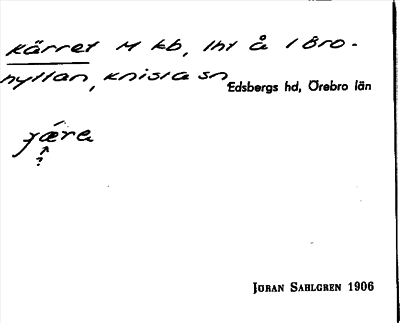 Kärret M kb, lht å i Bro-
hyttan, Knista sn,
Edsbergs hd, Örebro län
?
JÖRAN SAHLGREN 1906